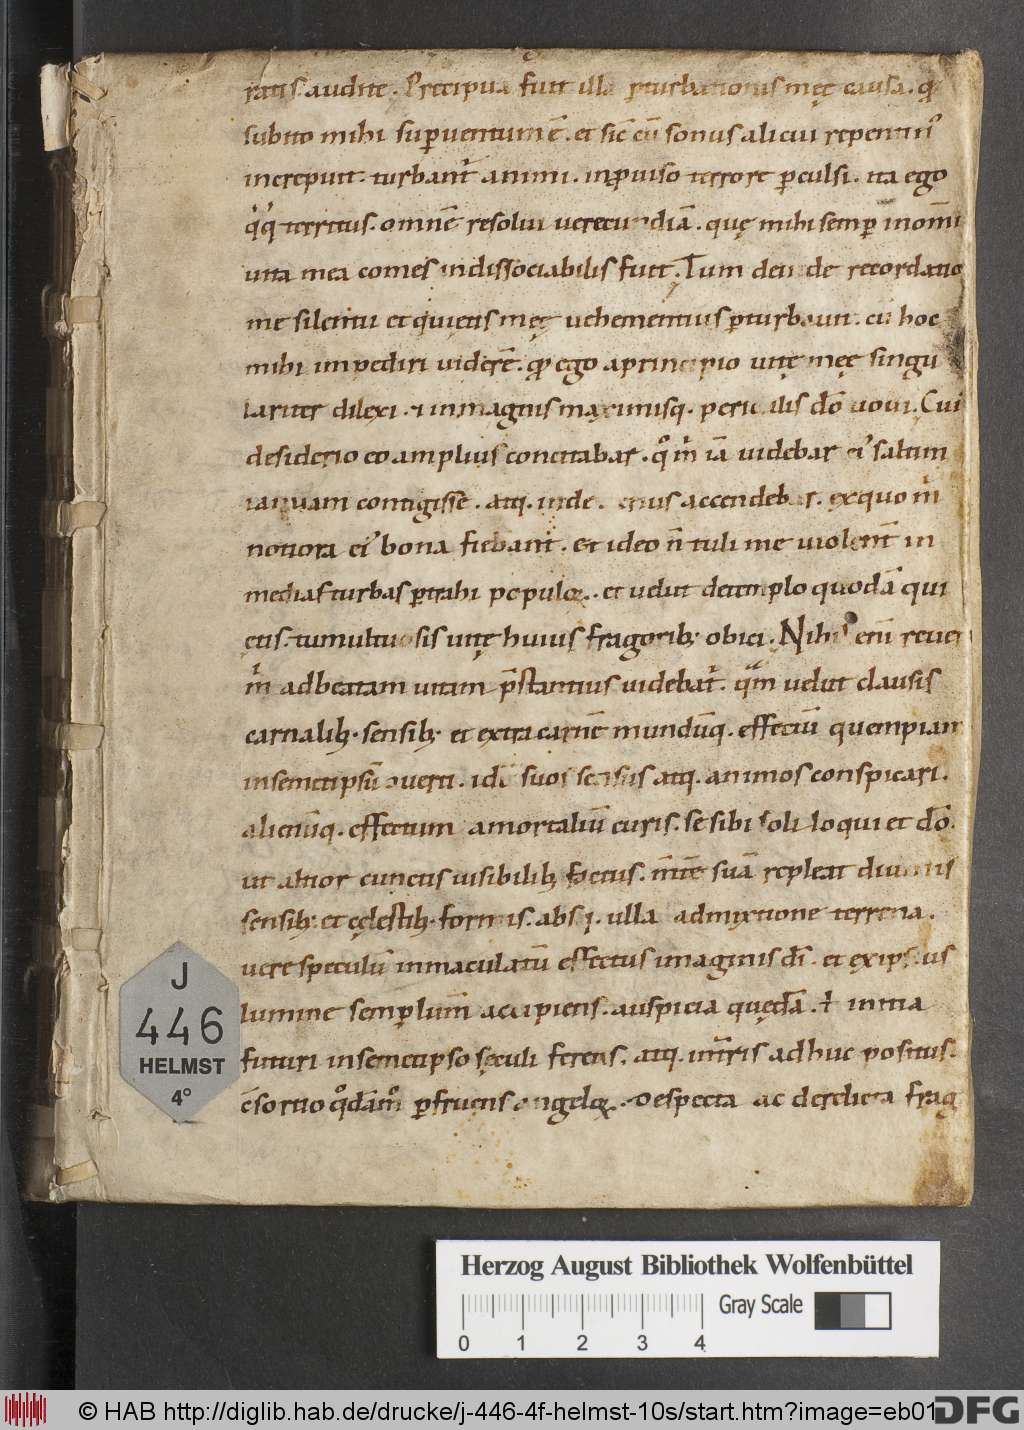 ratis. audite. Precipua fuit illa p̱turbationis męę causa. qđ
subito mihi suꝑuentum ē. et sic̄ cū sonus alicui repentin᷒
increpuit. turbant᷑ animi. inꝓuiso terrore ꝑculsi. ita ego
q̊q̊ territus. omnē resolui uerecundiā. quę mihi semꝑ in om̄i
uita mea comes indissociabilis fuit. Tum deinde recordatio
me silentii et quietis męę uehementius ꝑturbauit. cū hoc
mihi impediri uiderē. qđ ego a principio uitę męę singu
lariter dilexi. & in magnis maximisq. periculis do̅ uoui. Cui
desiderio eo amplius concitabar. q̊ m̊ iā uidebar ei᷒ saltim
ianuam contigisse. atq. inde accendebar. ex quo m̊
notiora ei᷒ bona fiebant. et ideo n̄ tuli me uiolent̄ in
medias turbas ꝑtrahi populoꝝ. et uelut de templo quodā qui
etis. tumultuosis uitę huius fragorib; obici. Nihil eni̅ reuera
m̊ ad beatam uitam p̄stantius uidebat᷑. qᵃm uelut clausis
carnalib;. sensib;. et extra carnē mundūq. effectū quempiam
in semetipsū
alienūq. effectum a mortaliū curis. se sibi soli loqui et do̅.
ut altior cunctis uisibilib; factus. m̄te suā repleat diuinis
sensib;. et cęlestib;. formis. absq;. ulla admixtione terrena.
uere speculū inmaculatū effectus imaginis di̅. et ex ips᷒ius
lumine semꝑ lum̄ accipiens. auspicia quędā. & initia
futuri in semetipso sęculi ferens. atq. in t̄ris adhuc positus.
c̄sortio q̊dām̊ ꝑfruens angeloꝝ. Despecta ac derelicta frag
J
446
HELMST
4°
Herzog August Bibliothek Wolfenbüttel
Gray Scale
0 1 2 3 4
© HAB http://diglib.hab.de/drucke/j-446-4f-helmst-10s/start.htm?image=eb01
DFG